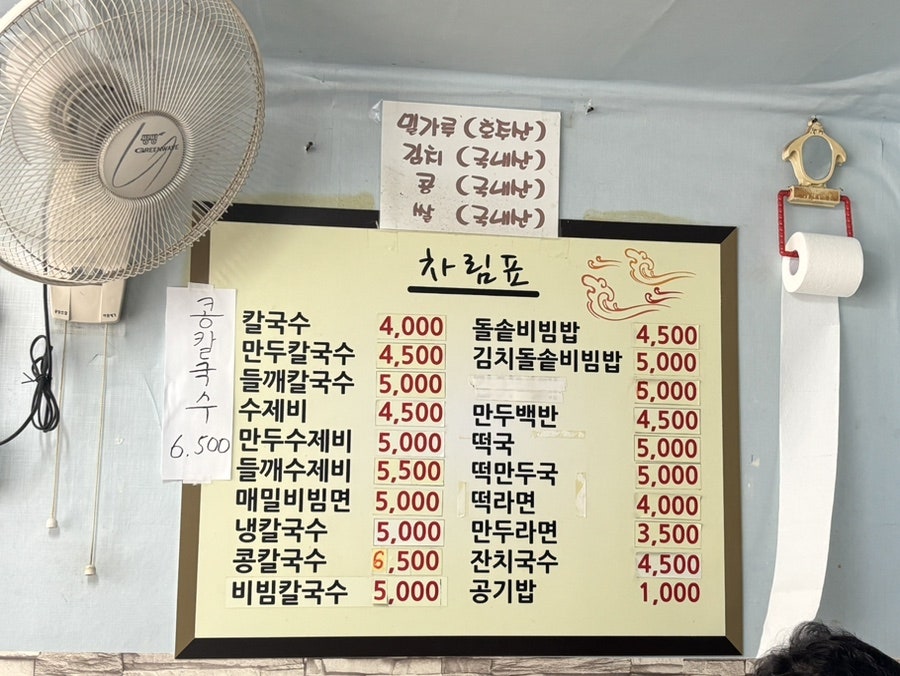 밀가루 (호주산)
김치 (국내산)
콩 (국내산)
쌀 (국내산)
차림표
칼국수 4,000
만두칼국수 4,500
들깨칼국수 5,000
수제비 4,500
만두수제비 5,000
들깨수제비 5,500
매밀비빔면 5,000
냉칼국수 5,000
콩칼국수 6,500
비빔칼국수 5,000
돌솥비빔밥 4,500
김치돌솥비빔밥 5,000
5,000
만두백반 4,500
떡국 5,000
떡만두국 5,000
떡라면 4,000
만두라면 3,500
잔치국수 4,500
공기밥 1,000
콩칼국수
6.500
GREENWAVE